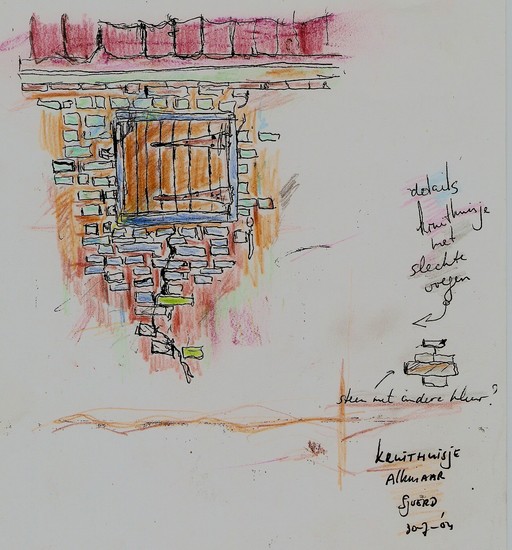 details
kruithuisje
met
slechte
voegen
steen met andere kleur?
KRUITHUISJE
ALKMAAR
SJOERD
30-7-'04